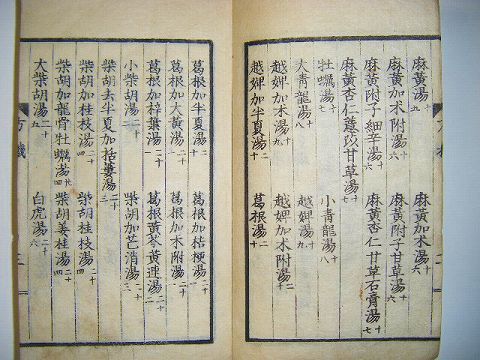 麻黄湯 麻黄加朮湯十六
麻黄加朮附湯十六 麻黄附子甘草湯十六
麻黄附子細辛湯十六 麻黄杏仁甘草石膏湯十七
麻黄杏仁薏苡甘草湯十七
牡蠣湯十七 小青龍湯十八
大青龍湯十八 越婢湯十九
越婢加朮湯十九 越婢加朮附湯二十
越婢加半夏湯二十 葛根湯二十
葛根加半夏湯二十 葛根加桔梗湯二十一
葛根加大黄湯二十一 葛根加朮附湯二十一
葛根加梓葉湯二十一 葛根黄芩黄連湯二十二
小柴胡湯二十二 柴胡加芒消湯二十三
柴胡去半夏加栝蔞湯二十三
柴胡加桂枝湯二十四 柴胡桂枝湯二十四
柴胡加龍骨牡蠣湯廿四 柴胡姜桂湯二十四
大柴胡湯 白虎湯二十六
方機